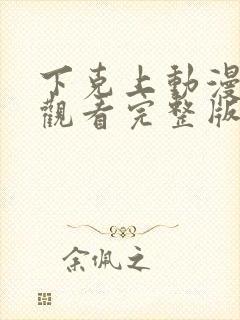 下克上動漫
觀看完整版
余佩之